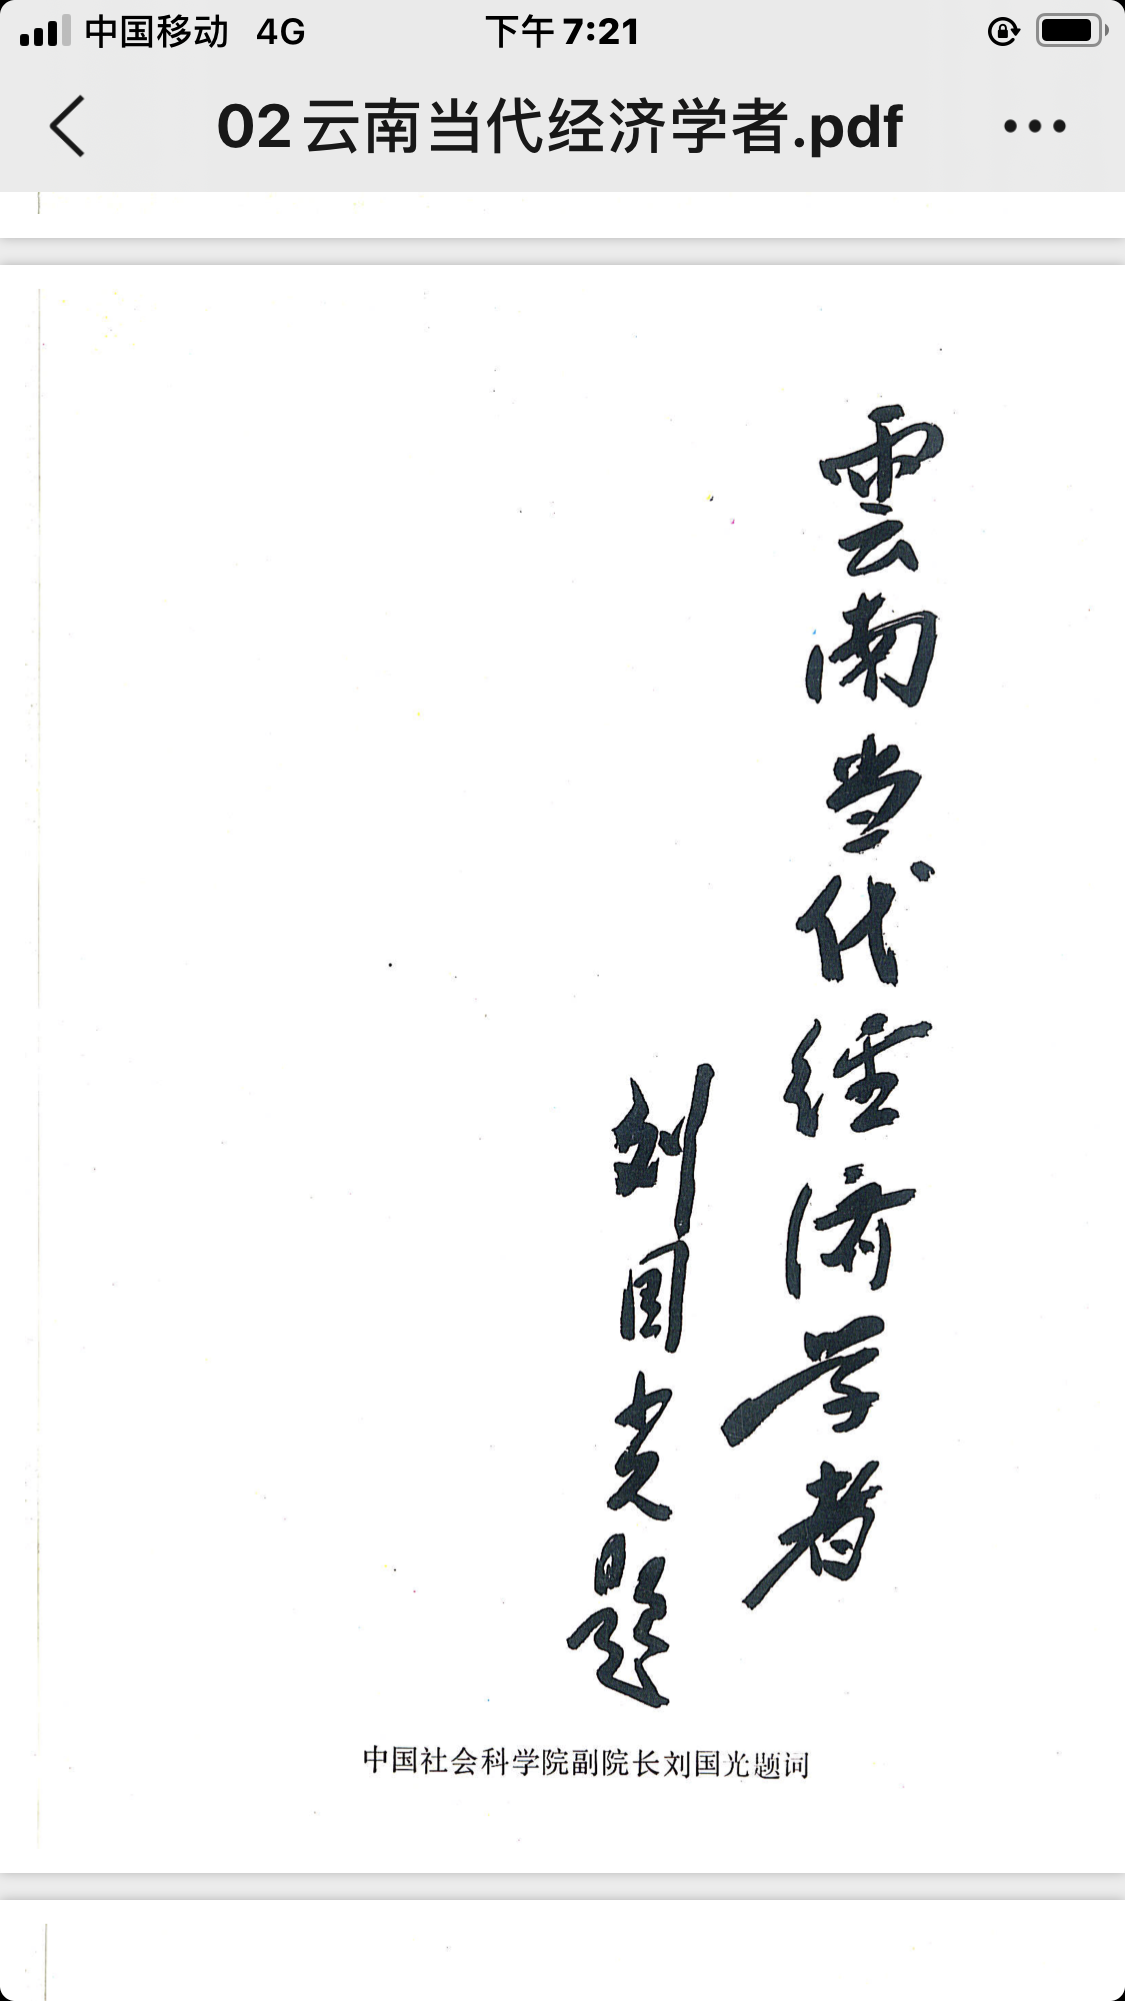 中国移动 4G 下午7:21
02云南当代经济学者.pdf
雲南当代经济学者
刘国光题
中国社会科学院副院长刘国光题词